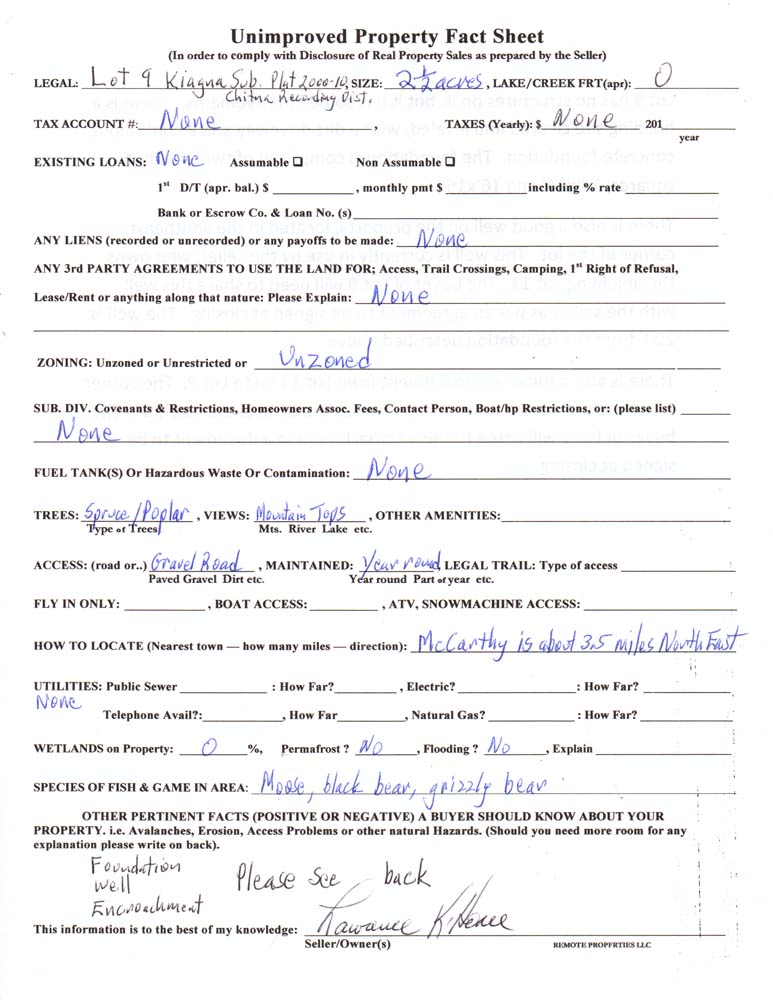 Unimproved Property Fact Sheet
(In order to comply with Disclosure of Real Property Sales as prepared by the Seller)
LEGAL: Lot 9 Kiagna Sub. Plat 2000-10, SIZE: 2 1/2 acres, LAKE/CREEK FRT(apr): 0
Chitna Recording Dist.
TAX ACCOUNT #: None , TAXES (Yearly): $ None 201
year
EXISTING LOANS: None Assumable ☐ Non Assumable ☐
1st D/T (apr. bal.) $ , monthly pmt $ including % rate
Bank or Escrow Co. & Loan No. (s)
ANY LIENS (recorded or unrecorded) or any payoffs to be made: None
ANY 3rd PARTY AGREEMENTS TO USE THE LAND FOR; Access, Trail Crossings, Camping, 1st Right of Refusal,
Lease/Rent or anything along that nature: Please Explain: None
ZONING: Unzoned or Unrestricted or Unzoned
SUB. DIV. Covenants & Restrictions, Homeowners Assoc. Fees, Contact Person, Boat/hp Restrictions, or: (please list)
None
FUEL TANK(S) Or Hazardous Waste Or Contamination: None
TREES: Spruce/Poplar , VIEWS: Mountain Tops , OTHER AMENITIES:
Type of Trees Mts. River Lake etc.
ACCESS: (road or..) Gravel Road , MAINTAINED: Year round LEGAL TRAIL: Type of access
Paved Gravel Dirt etc. Year round Part of year etc.
FLY IN ONLY: , BOAT ACCESS: , ATV, SNOWMACHINE ACCESS:
HOW TO LOCATE (Nearest town — how many miles — direction): McCarthy is about 3.5 miles North East
UTILITIES: Public Sewer : How Far? , Electric? : How Far?
None
Telephone Avail?: , How Far , Natural Gas? : How Far?
WETLANDS on Property: 0 %, Permafrost ? NO , Flooding ? No , Explain
SPECIES OF FISH & GAME IN AREA: Moose, black bear, grizzly bear
OTHER PERTINENT FACTS (POSITIVE OR NEGATIVE) A BUYER SHOULD KNOW ABOUT YOUR
PROPERTY. i.e. Avalanches, Erosion, Access Problems or other natural Hazards. (Should you need more room for any
explanation please write on back).
Foundation
Well Please see back
Encroachment
This information is to the best of my knowledge:
Seller/Owner(s) REMOTE PROPERTIES LLC